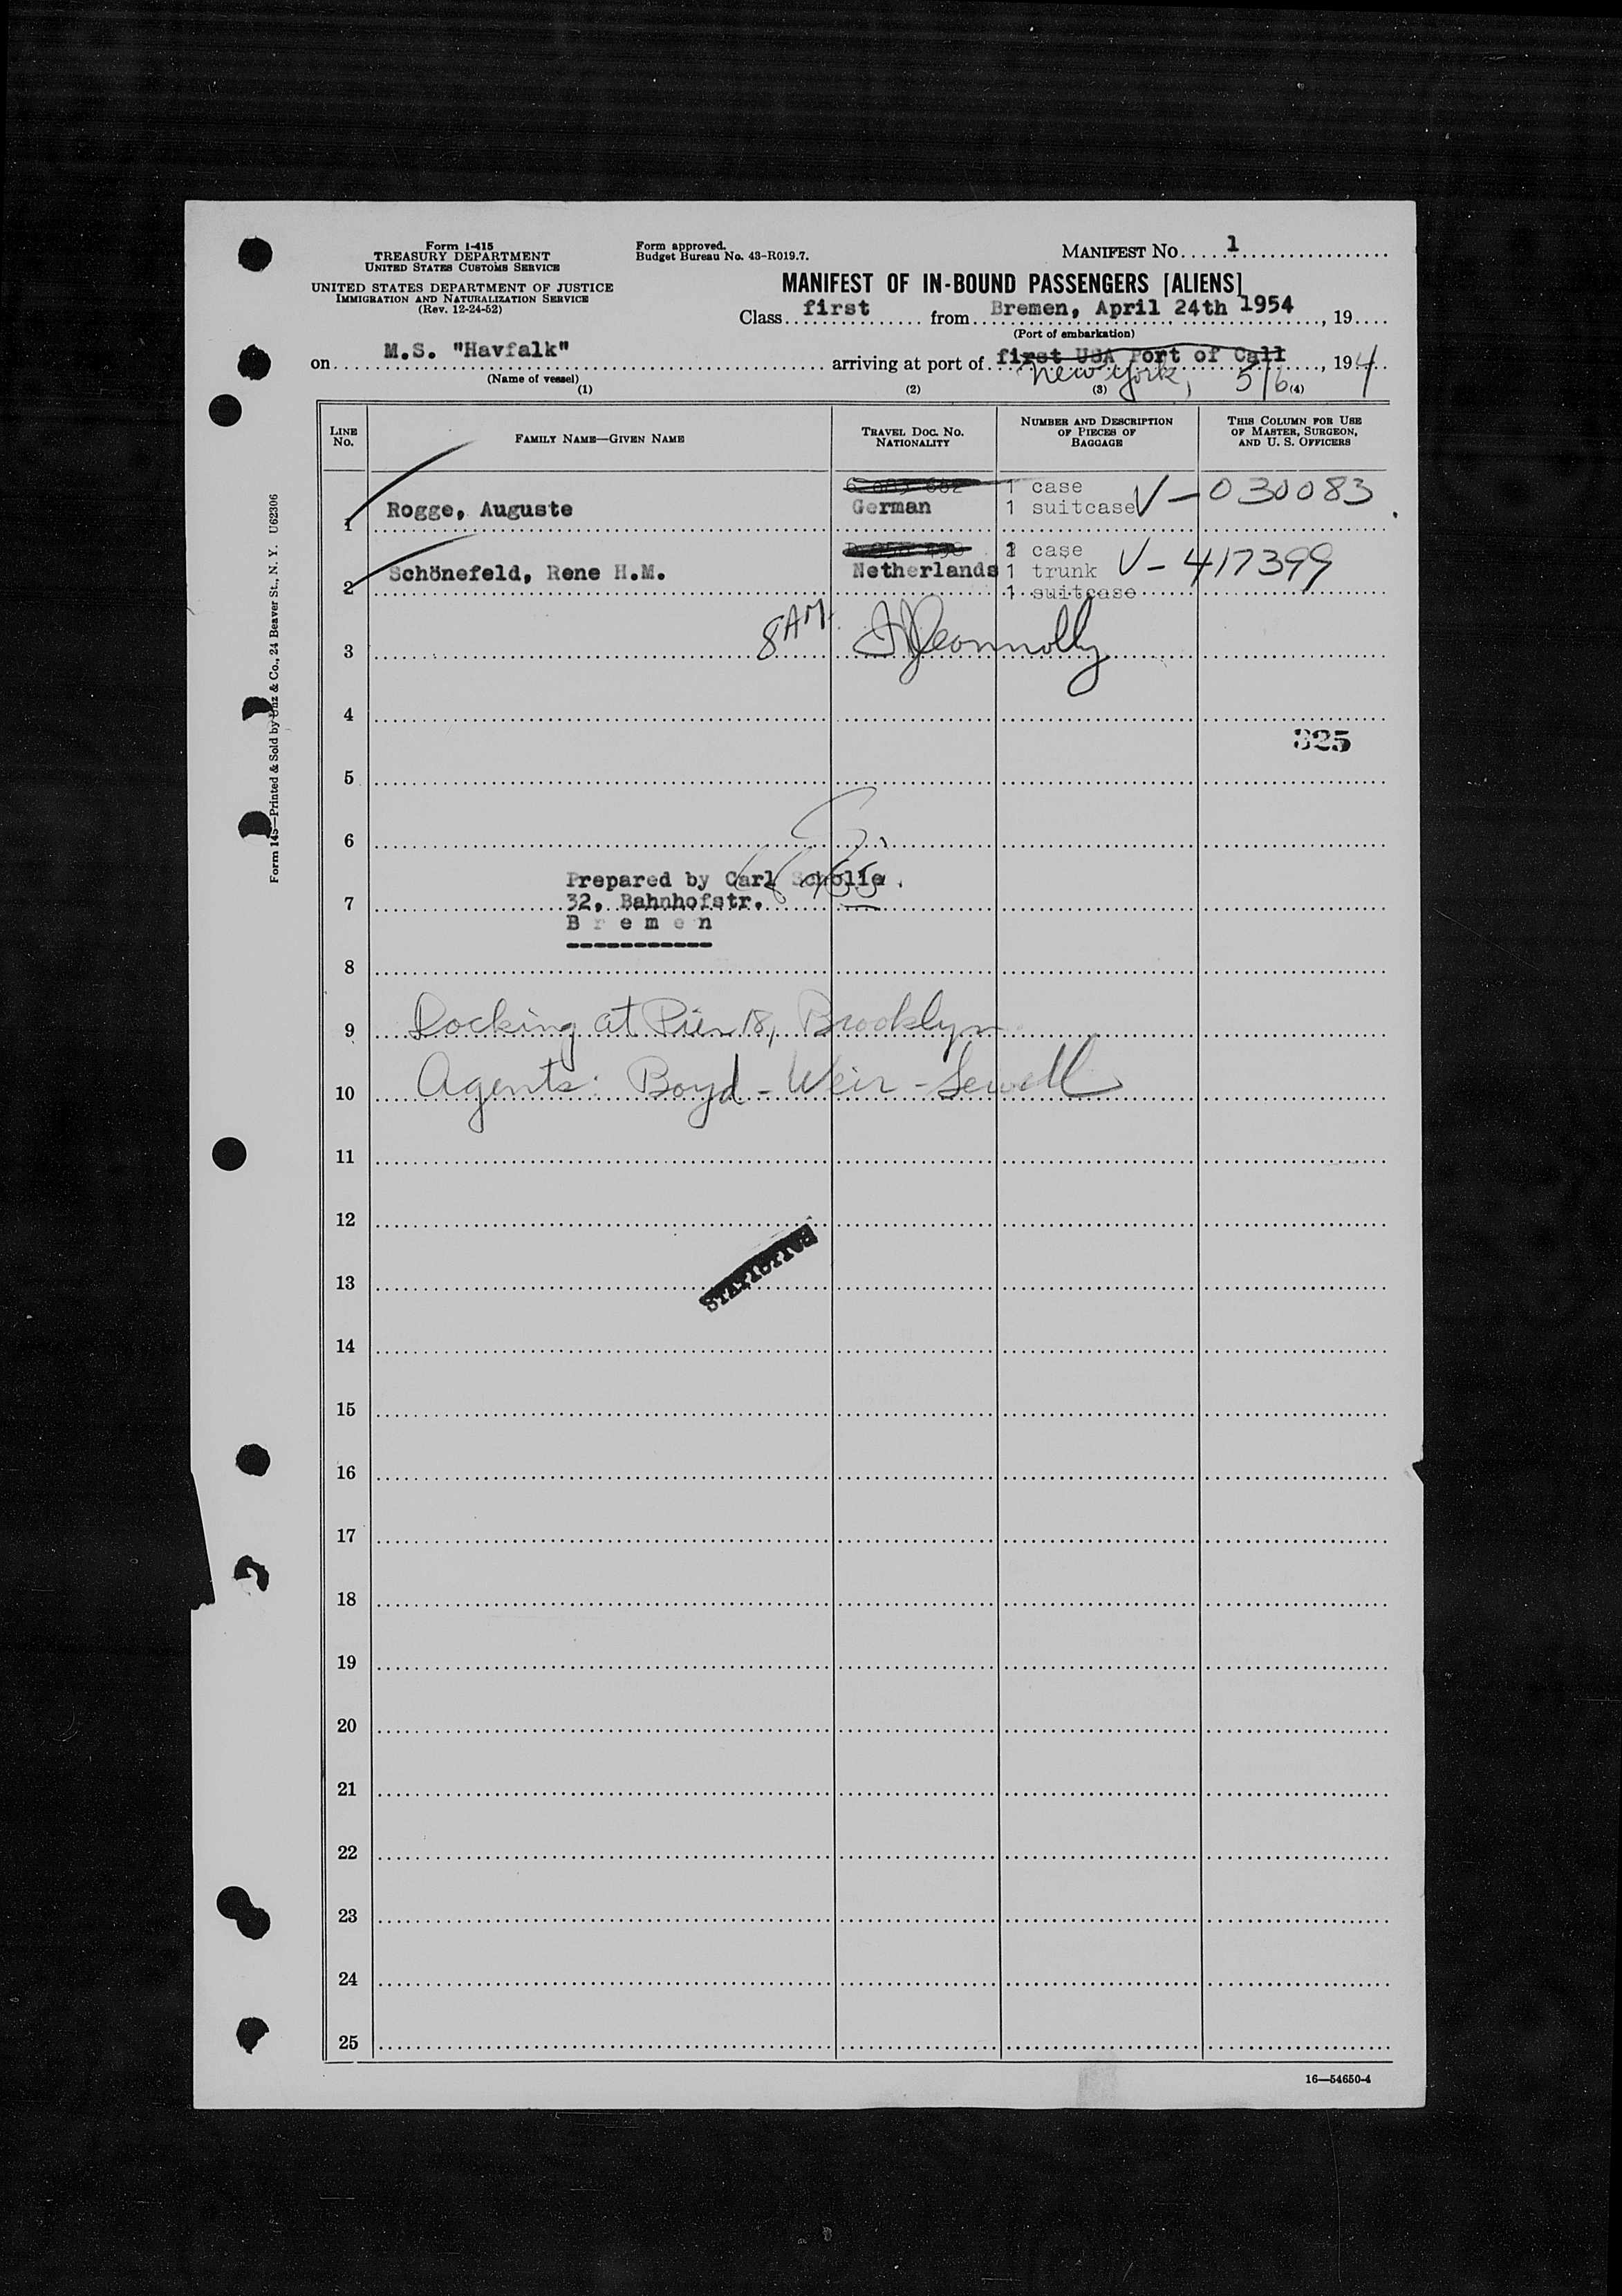 Form I-415
TREASURY DEPARTMENT
UNITED STATES CUSTOMS SERVICE
UNITED STATES DEPARTMENT OF JUSTICE
IMMIGRATION AND NATURALIZATION SERVICE
(Rev. 12-24-52)
Form approved.
Budget Bureau No. 43-R019.7.
MANIFEST NO. 1
MANIFEST OF IN-BOUND PASSENGERS [ALIENS]
Class first from Bremen, April 24th 1954, 19
(Port of embarkation)
on M.S. "Havfalk" arriving at port of first USA Port of Call, 194
New York, 5/6
(Name of vessel)
(1) (2) (3) (4)
LINE NO.
FAMILY NAME—GIVEN NAME
TRAVEL DOC. NO. NATIONALITY
NUMBER AND DESCRIPTION OF PIECES OF BAGGAGE
THIS COLUMN FOR USE OF MASTER, SURGEON, AND U. S. OFFICERS
1 case
1 Rogge, Auguste German 1 suitcase V-030083
case
2 Schönefeld, Rene H.M. Netherlands 1 trunk V-417399
1 suitcase
3 8 AM Connolly
4
325
5
6
Prepared by Carl Scholle
7 32, Bahnhofstr.
Bremen
8
9 Docking at Pier 18, Brooklyn
10 Agents: Boyd-Weir-Sewell
11
12
STATISTICS
13
14
15
16
17
18
19
20
21
22
23
24
25
16—54650-4
Form 145—Printed & Sold by Unz & Co., 24 Beaver St., N. Y. U62306